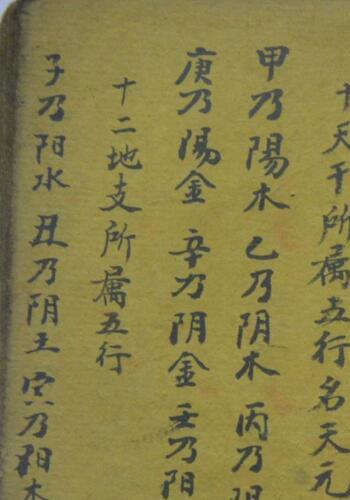 十天干所属五行名天元
甲乃陽木 乙乃阴木 丙乃阳
庚乃陽金 辛乃阴金 壬乃阳
十二地支所属五行
子乃阳水 丑乃阴土 寅乃阳木